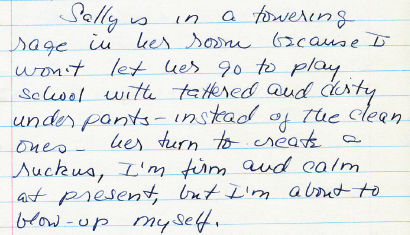 Sally is in a towering
rage in her room because I
won't let her go to play
school with tattered and dirty
under pants - instead of the clean
ones - her turn to create a
ruckus, I'm firm and calm
at present, but I'm about to
blow-up myself.